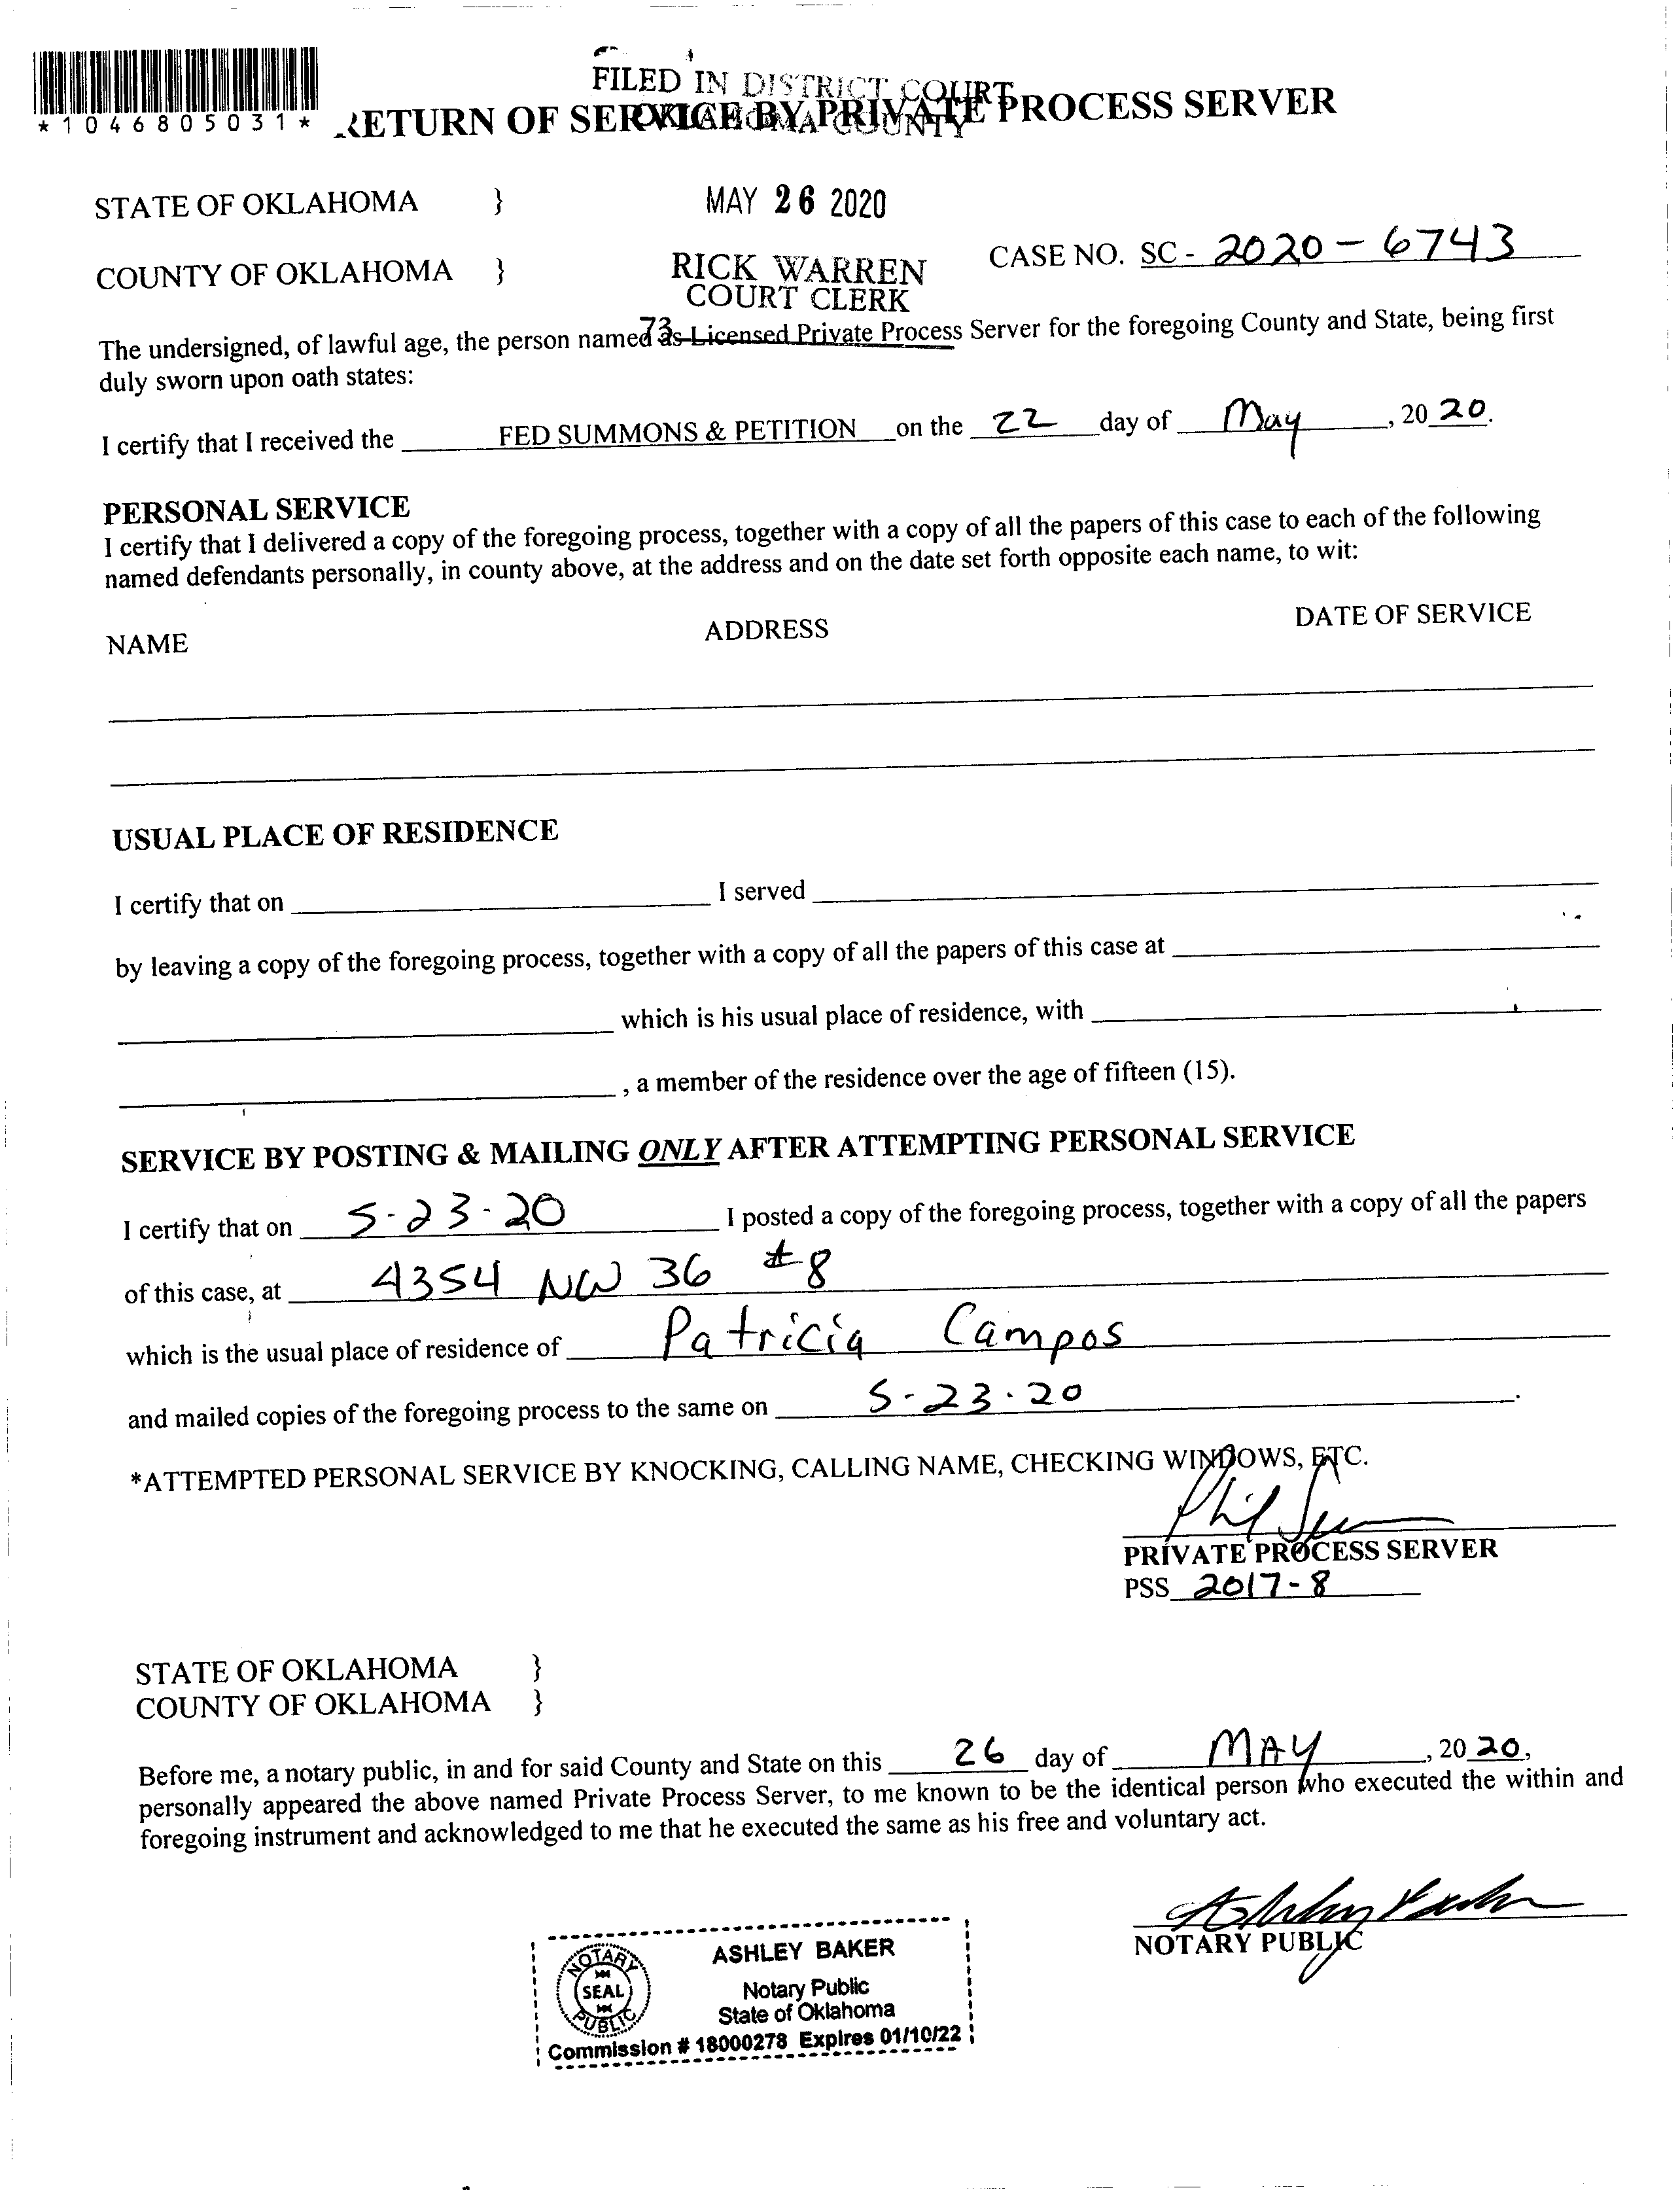 *1046805031*
FILED IN DISTRICT COURT
OKLAHOMA COUNTY
RETURN OF SERVICE BY PRIVATE PROCESS SERVER
STATE OF OKLAHOMA } MAY 26 2020
COUNTY OF OKLAHOMA } RICK WARREN CASE NO. SC - 2020 - 6743
COURT CLERK
73
The undersigned, of lawful age, the person named as Licensed Private Process Server for the foregoing County and State, being first
duly sworn upon oath states:
I certify that I received the FED SUMMONS & PETITION on the 22 day of May, 20 20.
PERSONAL SERVICE
I certify that I delivered a copy of the foregoing process, together with a copy of all the papers of this case to each of the following
named defendants personally, in county above, at the address and on the date set forth opposite each name, to wit:
NAME ADDRESS DATE OF SERVICE
USUAL PLACE OF RESIDENCE
I certify that on I served
by leaving a copy of the foregoing process, together with a copy of all the papers of this case at
which is his usual place of residence, with
, a member of the residence over the age of fifteen (15).
SERVICE BY POSTING & MAILING ONLY AFTER ATTEMPTING PERSONAL SERVICE
I certify that on 5-23-20 I posted a copy of the foregoing process, together with a copy of all the papers
of this case, at 4354 NW 36 #8
which is the usual place of residence of Patricia Campos
and mailed copies of the foregoing process to the same on 5-23-20.
*ATTEMPTED PERSONAL SERVICE BY KNOCKING, CALLING NAME, CHECKING WINDOWS, ETC.
Phil
PRIVATE PROCESS SERVER
PSS 2017-8
STATE OF OKLAHOMA }
COUNTY OF OKLAHOMA }
Before me, a notary public, in and for said County and State on this 26 day of MAY, 20 20,
personally appeared the above named Private Process Server, to me known to be the identical person who executed the within and
foregoing instrument and acknowledged to me that he executed the same as his free and voluntary act.
Ashley Baker
NOTARY PUBLIC
NOTARY SEAL PUBLIC
ASHLEY BAKER
Notary Public
State of Oklahoma
Commission # 18000278 Expires 01/10/22